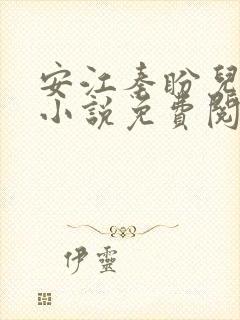 安江秦盼兒
小說免費閱
伊靈